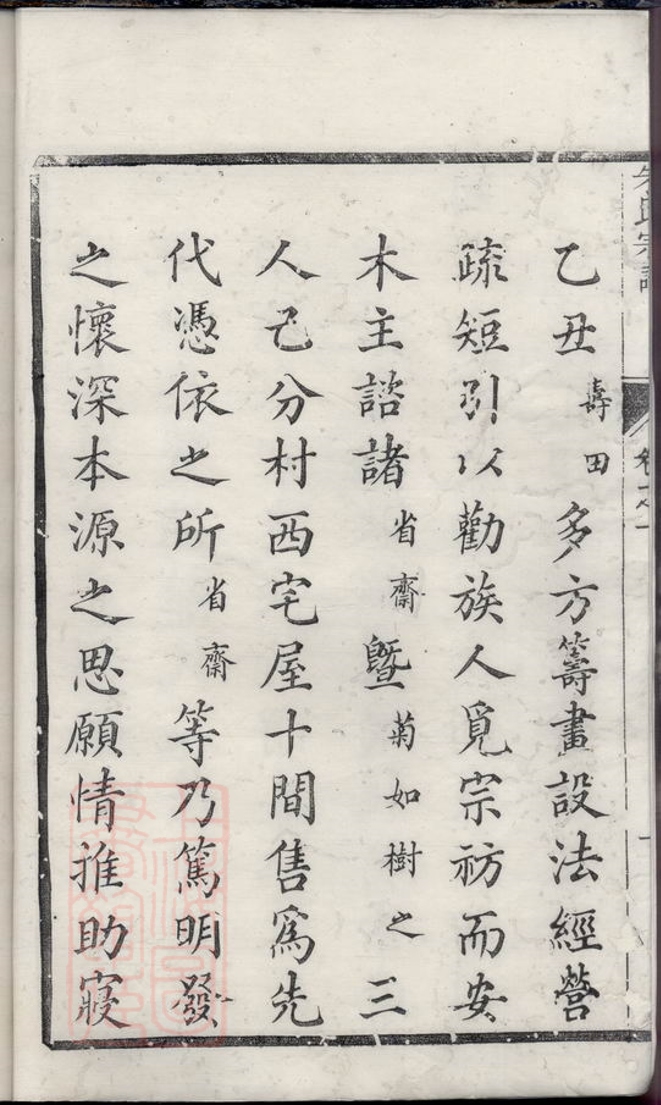 乙丑壽田多方籌畫設法經營
疏短引以勸族人覓宗祊而安
木主諮諸省齋暨菊如樹之三
人己分村西宅屋十間售爲先
代憑依之所省齋等乃篤明發
之懷深本源之思願情推助寢